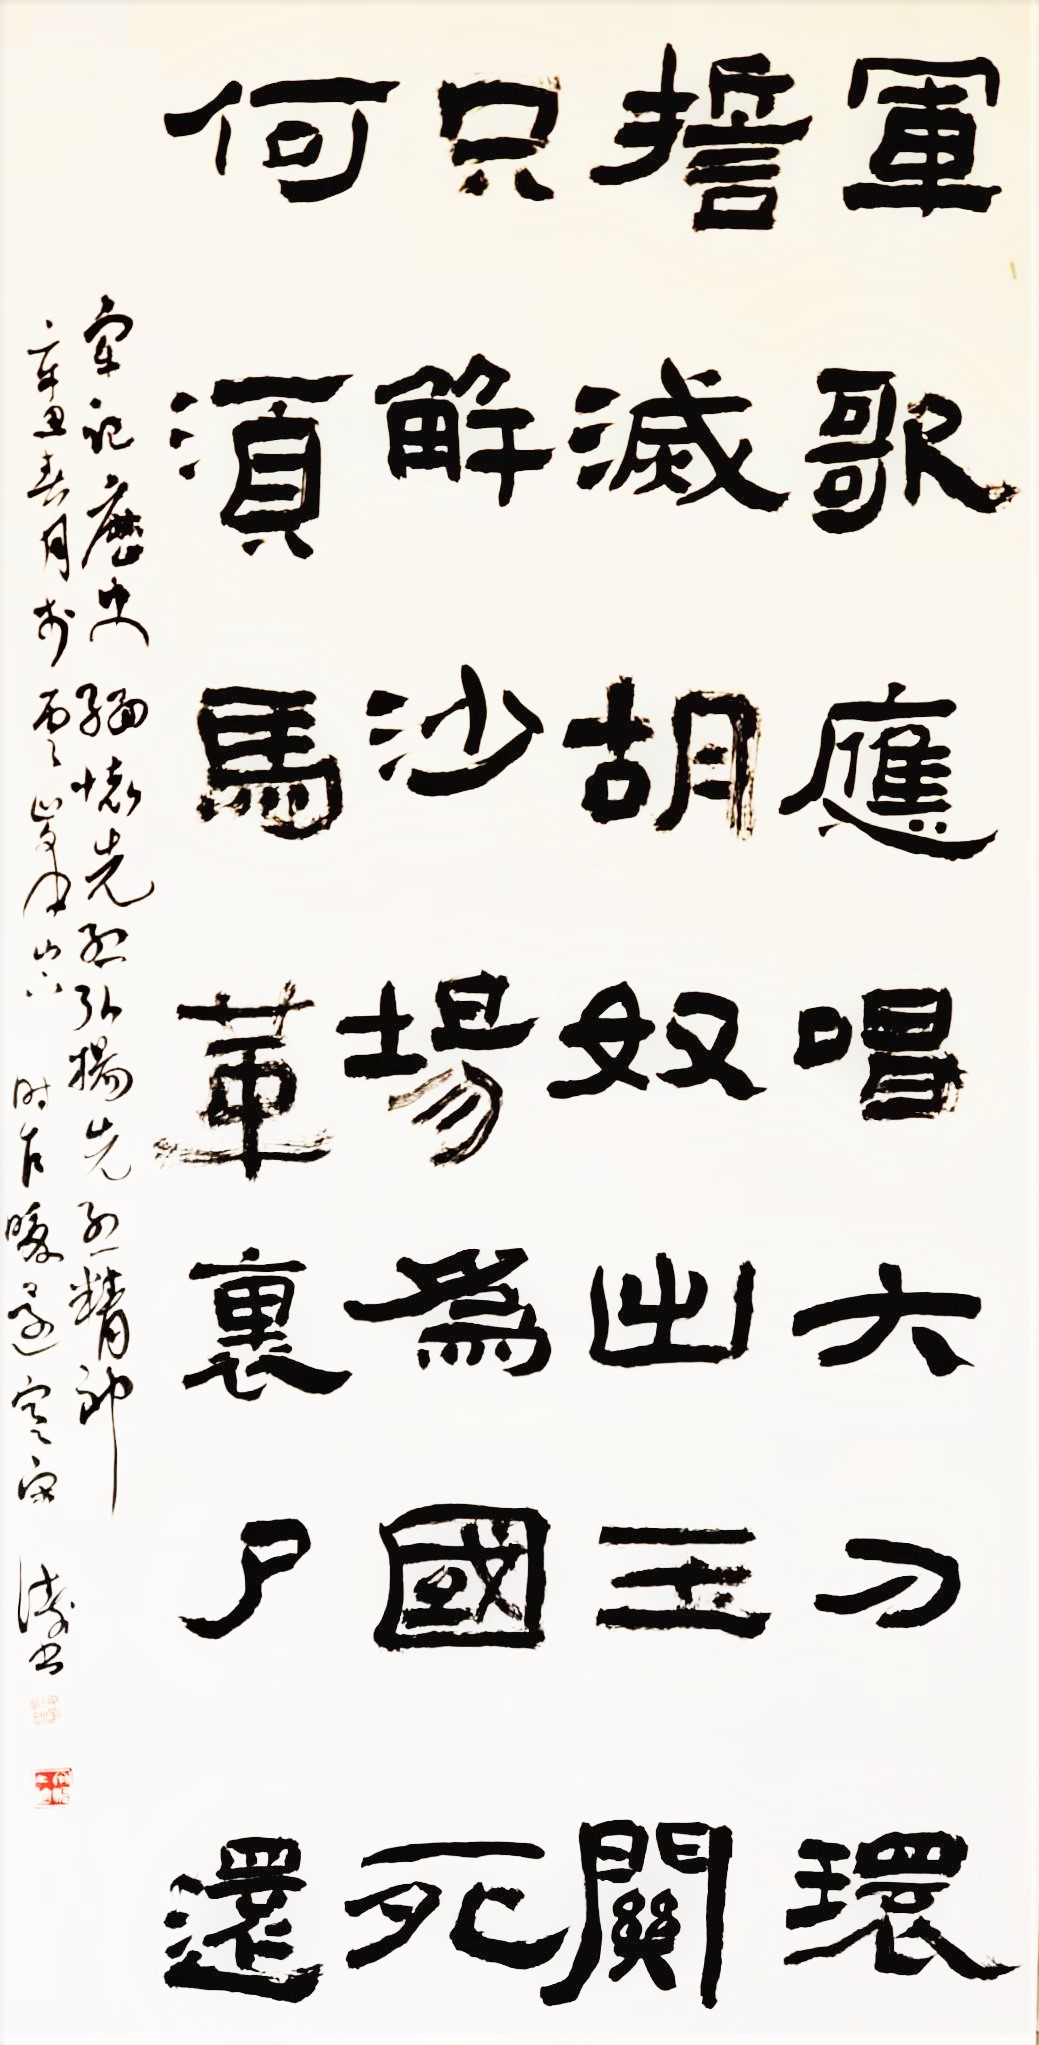 軍歌應唱大刀環
誓滅胡奴出玉關
只解沙場為國死
何須馬革裹尸還
牢記歷史緬懷先烈弘揚先烈精神
辛丑春月於雲峰山下時在暖還寒宋濤書